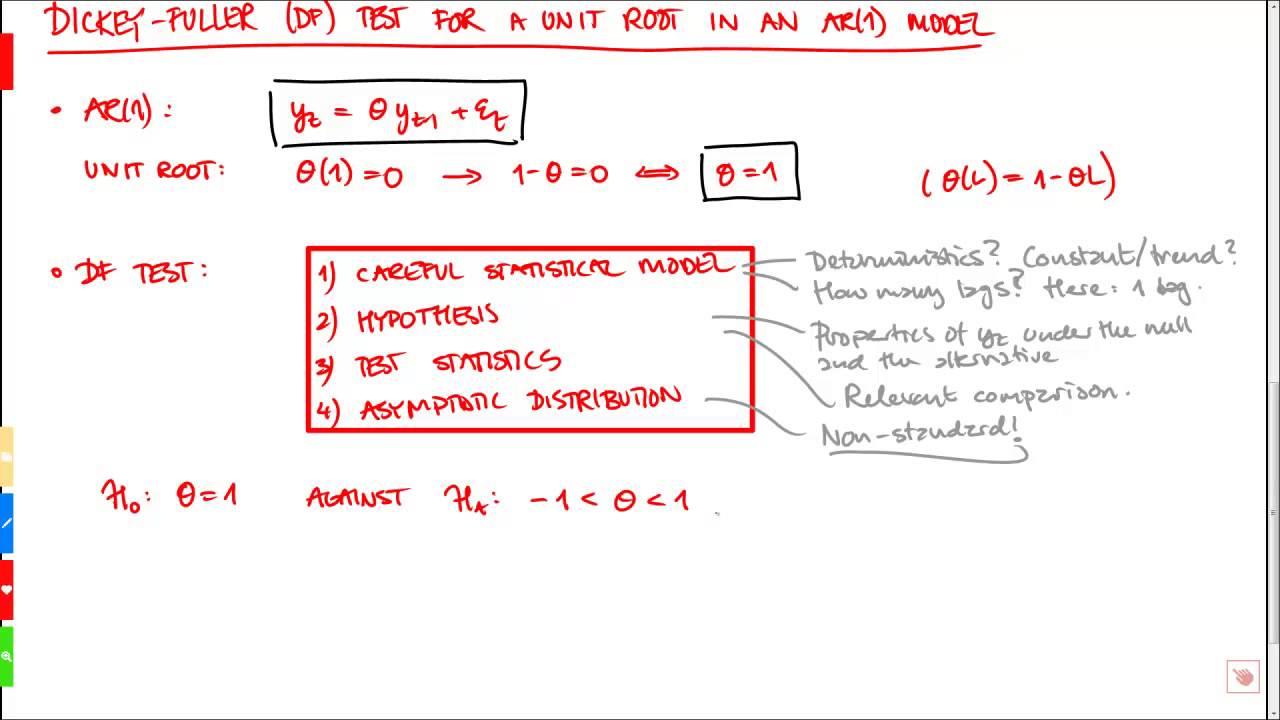 DICKEY-FULLER (DF) TEST FOR A UNIT ROOT IN AN AR(1) MODEL
• AR(1): y_t = θ y_{t-1} + ε_t
UNIT ROOT: θ(1) = 0 → 1-θ = 0 ⟺ θ = 1 (θ(L) = 1-θL)
• DF TEST:
1) CAREFUL STATISTICAL MODEL
2) HYPOTHESIS
3) TEST STATISTICS
4) ASYMPTOTIC DISTRIBUTION
Deterministics? Constant/trend?
How many lags? Here: 1 lag.
Properties of y_t under the null
and the alternative
Relevant comparison.
Non-standard!
H_0: θ = 1 AGAINST H_A: -1 < θ < 1